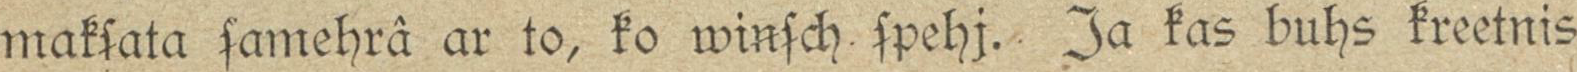 makſata ſamehrâ ar to, ko winſch ſpehj. Ja kas buhs kreetnis